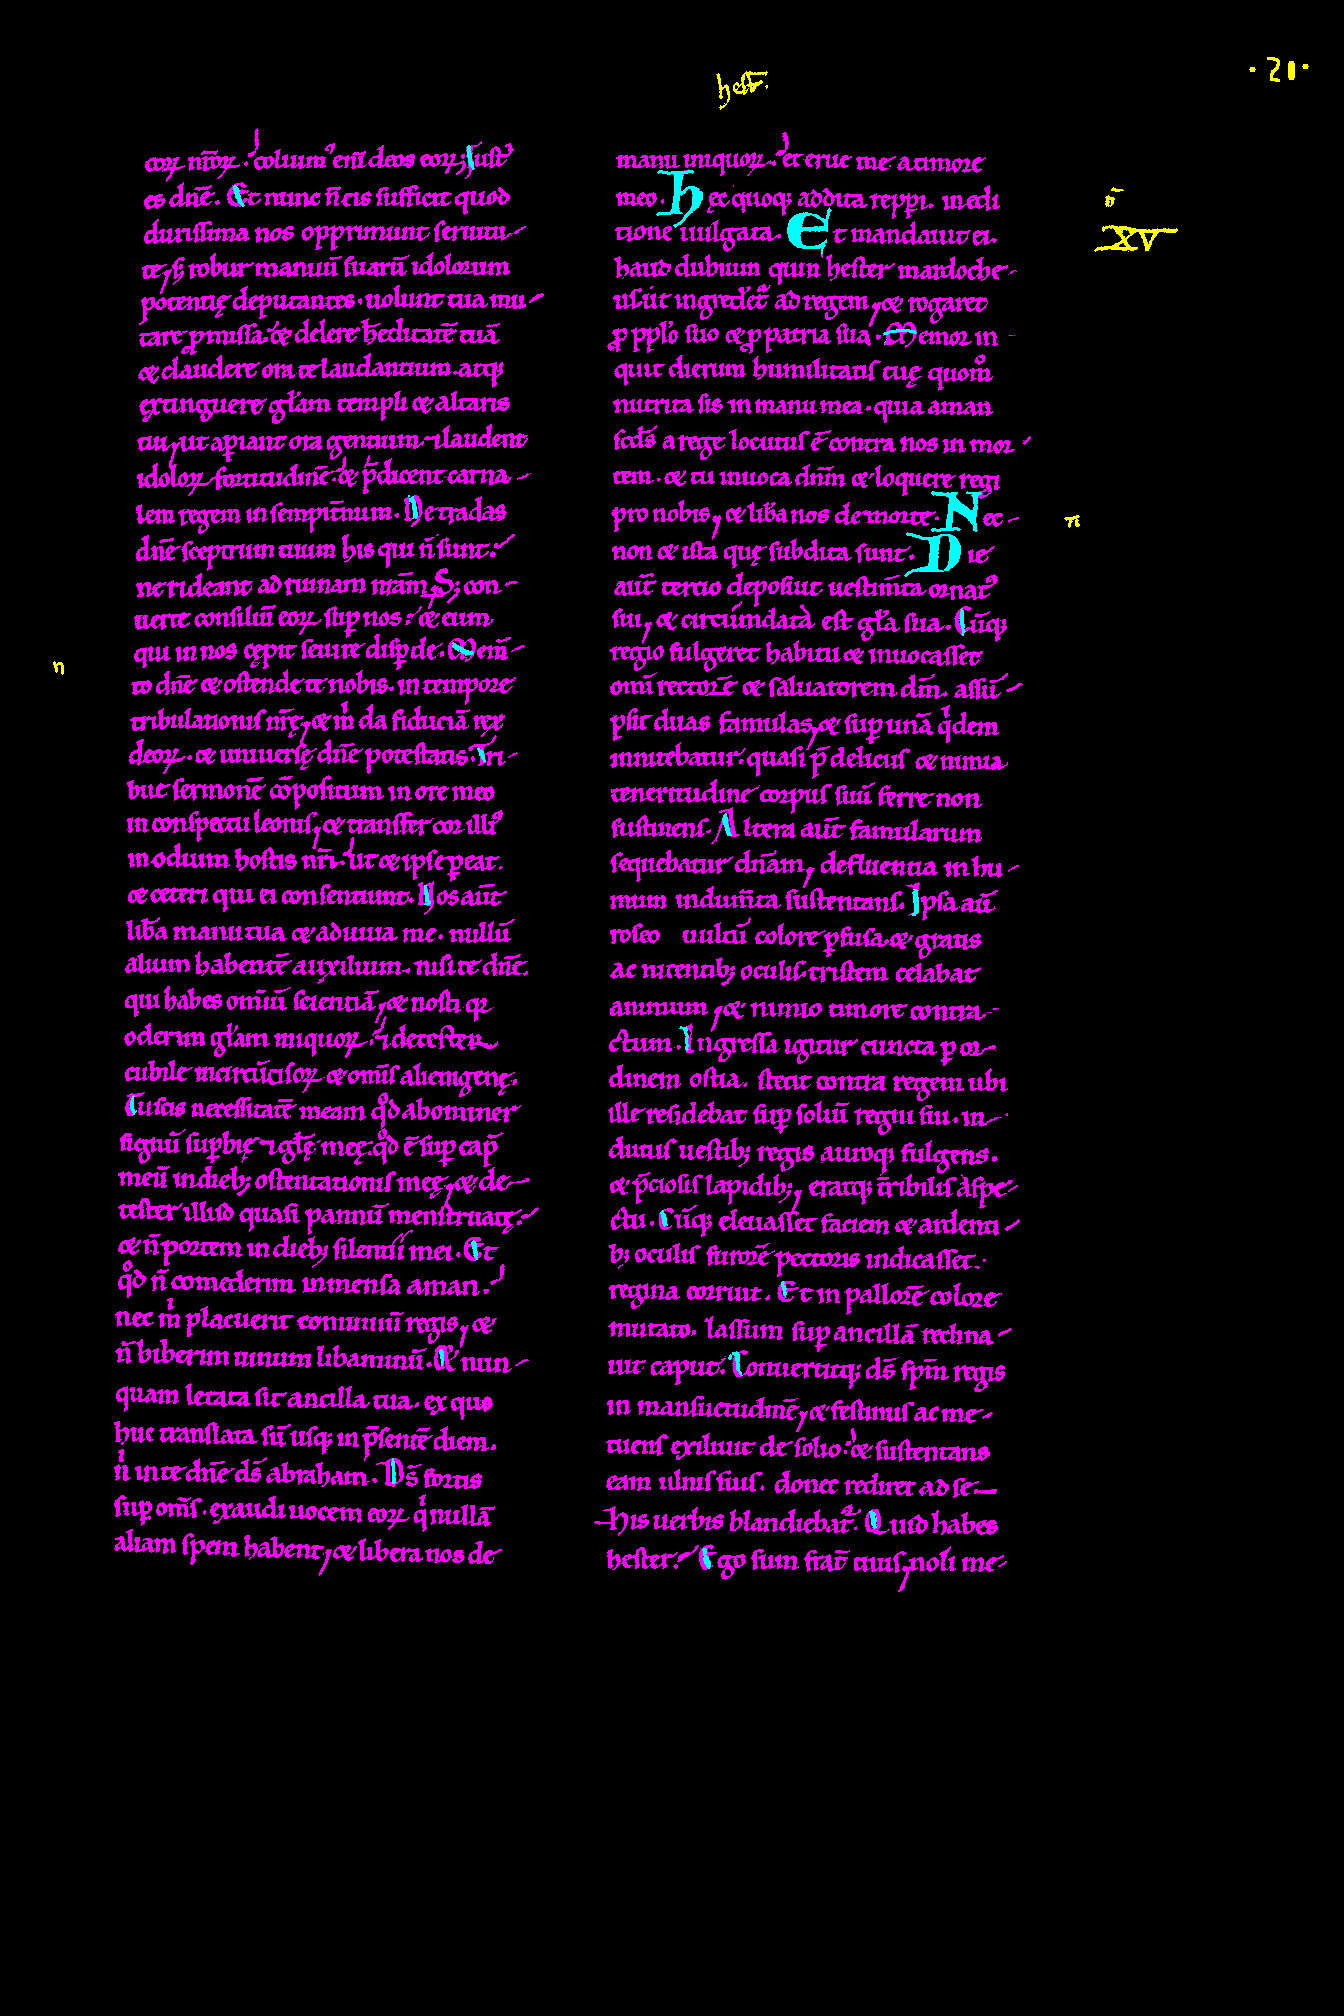 hest̄.
·21·
coꝝ nr̄oꝝ. coluim᷒ eni deos eoꝝ; Iust᷒
es dn̄e. Et nunc n̄ eis sufficit quod
durissima nos opprimunt seruitu-
te, sꝫ robur manuū suarū idolorum
potentię deputantes. uolunt tua mu-
tare ꝓmissa. & delere h̄editatē tuā
& claudere ora te laudantium. atqꝫ
extinguere gl̄am templi & altaris
tui, ut aꝑiant ora gentium ⁊ laudent
idoloꝝ fortitudinē. & p̄dicent carna-
lem regem in sempit̄num. Ne tradas
dn̄e sceptrum tuum his qui n̄ sunt.
ne rideant ad ruinam nr̄am, Sꝫ con-
uerte consiliū eoꝝ suꝑ nos. & eum
qui in nos cępit seuire disꝑde. Mem̄-
n
to dn̄e & ostende te nobis. in tempore
tribulationis nr̄ę, & m̍ da fiduciā rex
deoꝝ. & uniuersę dn̄e potestatis. Tri-
bue sermonē cōpositum in ore meo
in conspectu leonis, & transfer cor illi᷒
in odium hostis nr̄i. ut & ipse ꝑeat.
& ceteri qui ei consentiunt. Nos aūt
lib̄a manu tua & adiuua me. nullū
alium habentē auxilium. nisi te dn̄e.
qui habes omiū scientiā, & nosti qꝛ
oderim gl̄am iniquoꝝ. ⁊ detester
cubile incircūcisoꝝ & omis alienigenę.
Tu scis necessitatē meam qͦd abominer
signū suꝑbię ⁊ gl̄ę meę. qͦd ē suꝑ cap̄
meū in diebꝫ ostentationis meę, & de-
tester illud quasi pannū menstruatę.
& n̄ portem in diebꝫ silentii mei. Et
qͦd n̄ comederim in mensa aman.
nec m̍ placuerit conuiuiū regis, &
n̄ biberim uinum libaminū. Et nun-
quam letata sit ancilla tua. ex quo
huc translata sū usqꝫ in p̄sentē diem.
n̍ in te dn̄e ds̄ abraham. Ds̄ fortis
suꝑ om̄s. exaudi uocem eoꝝ q̍ nullā
aliam spem habent, & libera nos de
manu iniquoꝝ. et erue me a timore
meo. Hęc quoqꝫ addita repꝑi. in edi
tione uulgata. Et mandauit ei.
n̄
XV
haud dubium quin hester mardoche-
us. ut ingredet᷑ ad regem, & rogaret
ꝓ pplo suo & ꝓ patria sua. Memor in
quit dierum humilitatis tuę quom̊
nutrita sis in manu mea. quia aman
scds̄ a rege locutus ē contra nos in mor
tem. & tu inuoca dnm̄ & loquere regi
pro nobis, & lib̄a nos de morte. Nec-
n
non & ista quę subdita sunt. Die
aut̄ tertio deposuit uestim̄ta ornat᷒
sui, & circumdata est gl̄a sua. Cūqꝫ
regio fulgeret habitu & inuocasset
omi rectorē & saluatorem dm̄. assū-
psit duas famulas, & suꝑ unā q̍dem
innitebatur. quasi p̄ deliciis & nimia
teneritudine corpus suū ferre non
sustinens. Altera aut̄ famularum
sequebatur dn̄am, defluentia in hu-
mum indum̄ta sustentans. Ipsa aū
roseo uultū colore ꝑfusa. & gratis
ac nitentibꝫ oculis. tristem celabat
animum, & nimio timore contra-
ctum. Ingressa igitur cuncta ꝑ or-
dinem ostia. stetit contra regem ubi
ille residebat suꝑ soliū regni sui. in-
dutus uestibꝫ regis auroqꝫ fulgens.
& p̄ciosis lapidibꝫ, eratqꝫ t̄ribilis aspe-
ctu. Cūqꝫ eleuasset faciem & ardenti-
bꝫ oculis furorē pectoris indicasset.
regina corruit. Et in pallorē colore
mutato. lassum suꝑ ancillā reclina-
uit caput. Conuertitqꝫ ds̄ spm̄ regis
in mansuetudinē, & festinus ac me-
tuens exiliuit de solio. & sustentans
eam ulnis suis. donec rediret ad se-
His uerbis blandiebat᷑. Quid habes
hester? Ego sum frat̄ tuus, noli me-